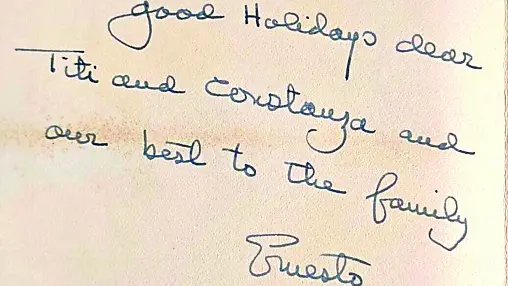 good Holidays dear
Titi and Constanza and
our best to the family
Ernesto